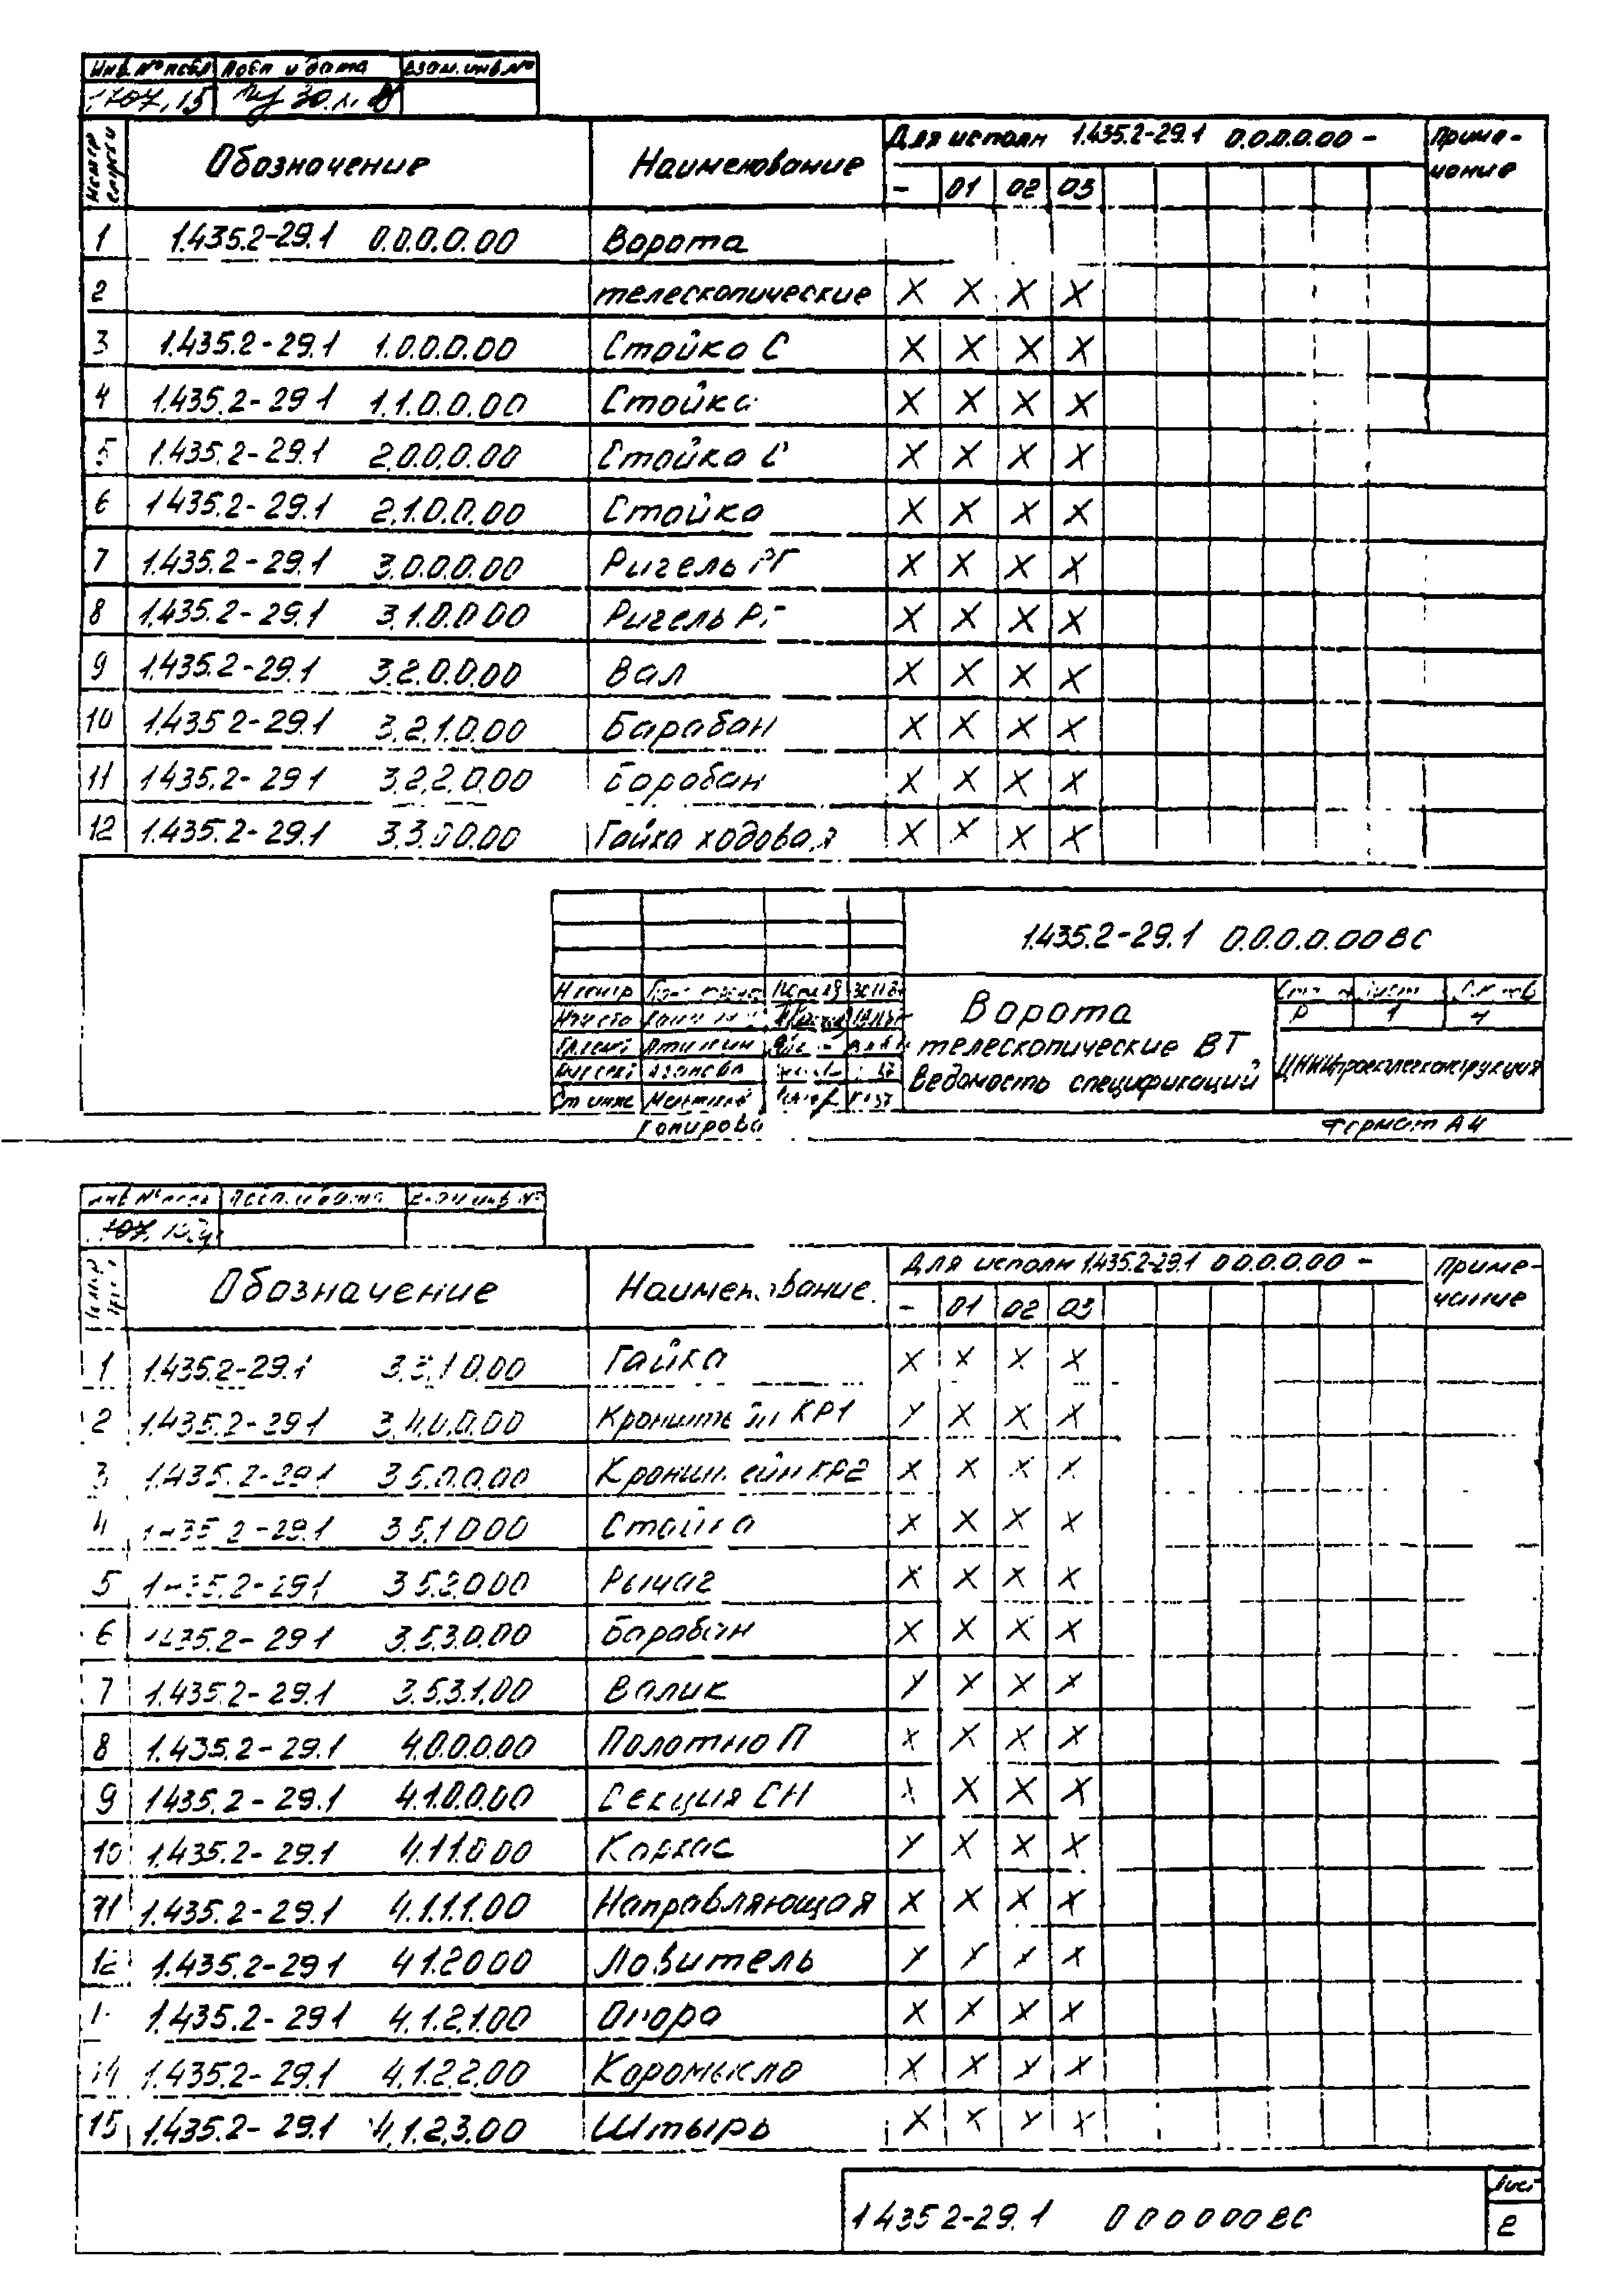 Инв № подл Подп и дата Взам.инв №
1707.15
Номер строки Обозначение Наименование Для исполн 1.435.2-29.1 0.0.0.0.00 - Приме-
чание
- 01 02 03
1 1.435.2-29.1 0.0.0.0.00 Ворота
2 телескопические X X X X
3 1.435.2-29.1 1.0.0.0.00 Стойка С X X X X
4 1.435.2-29 1 1.1.0.0.00 Стойка X X X X
5 1.435.2-29.1 2.0.0.0.00 Стойка С X X X X
6 1435.2-29.1 2.1.0.0.00 Стойка X X X X
7 1.435.2-29.1 3.0.0.0.00 Ригель РГ X X X X
8 1.435.2-29.1 3.1.0.0.00 Ригель РГ X X X X
9 1.435.2-29.1 3.2.0.0.00 Вал X X X X
10 1.435 2-29.1 3.2.1.0.00 Барабан X X X X
11 1.435.2-29 1 3.2.2.0.00 Барабан X X X X
12 1.435.2-29.1 3.3.0.0.00 Гайка ходовая X X X X
1.435.2-29.1 0.0.0.0.00 ВС
Н контр
Ворота
телескопические ВТ
Ведомость спецификаций
Лист
Р 1
ЦНИИпроектлегконструкция
Копировал
Формат А4
Инв № подл Подп. и дата Взам инв №
Номер строки Обозначение Наименование Для исполн 1.435.2-29.1 0 0.0.0.00 - Приме-
чание
- 01 02 03
1 1.435.2-29.1 3.3.1 0.00 Гайка X X X X
2 1.435.2-291 3.4.0.0.00 Кронштейн КР1 X X X X
3 1.435.2-291 3 5.0.0.00 Кронштейн КР2 X X X X
4 1.435 2-29.1 3 5.1 0 00 Стойка X X X X
5 1.435.2-291 3 5.2.0 00 Рычаг X X X X
6 1.435.2-29 1 3.5.3.0.00 Барабан X X X X
7 1.435.2-29.1 3.5.3.1.00 Валик X X X X
8 1.435.2-29.1 4.0.0.0.00 Полотно П X X X X
9 1435.2-29.1 4.1.0.0.00 Секция СН X X X X
10 1.435.2-29.1 4.1.1.0 00 Каркас X X X X
11 1.435.2-29.1 4.1.1.1.00 Направляющая X X X X
12 1.435.2-29 1 4 1.2 0 00 Ловитель X X X X
1.435.2-29 1 4.1.2.1.00 Опора X X X X
14 1.435.2-29.1 4.1.2.2.00 Коромысло X X X X
15 1.435.2-29.1 4.1.2.3.00 Штырь X X X X
1 435 2-29.1 0 0 0 0 00 ВС
Лист
2